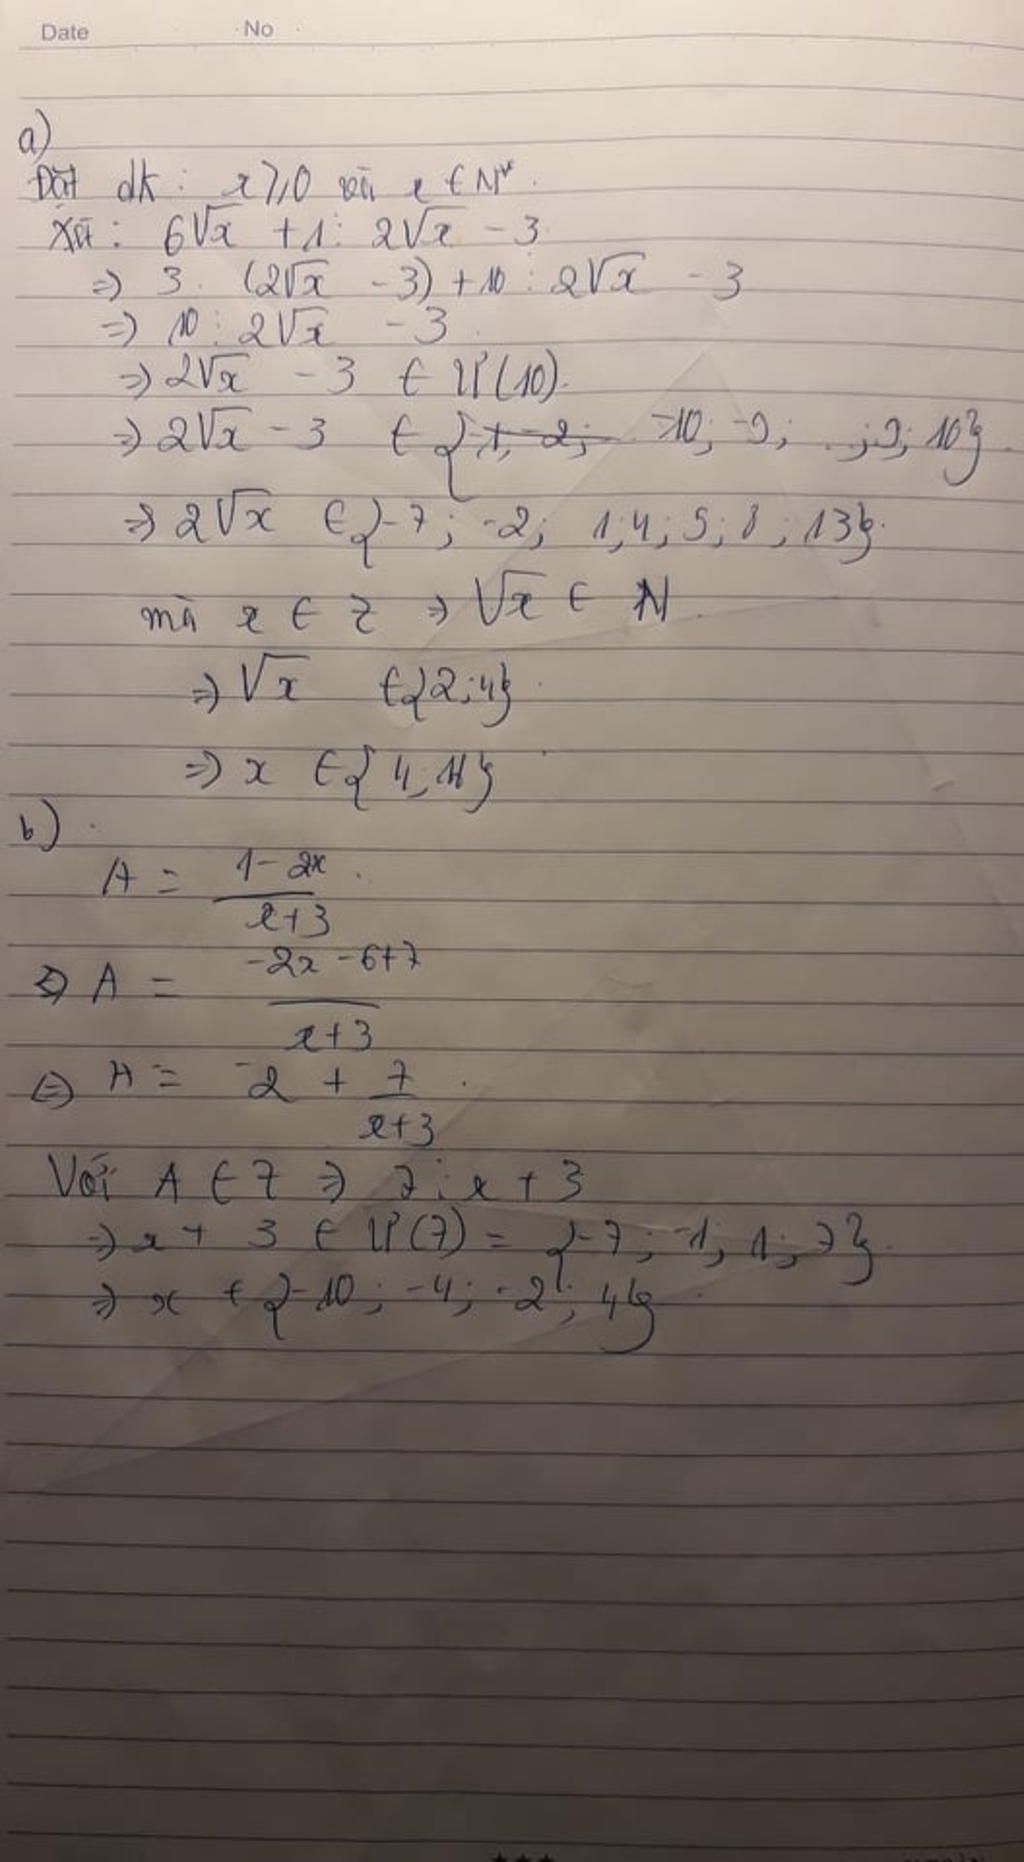 Date No
a)
Đặt đk : x ⩾ 0 và x ∈ N*.
Xét : 6√x + 1 ⋮ 2√x - 3
=> 3. (2√x - 3) + 10 ⋮ 2√x - 3
=> 10 ⋮ 2√x - 3.
=> 2√x - 3 ∈ Ư(10).
=> 2√x - 3 ∈ { -10; -9; ...; 9; 10}.
=> 2√x ∈ {-7; -2; 1; 4; 5; 8; 13}.
mà x ∈ Z => √x ∈ N.
=> √x ∈ {2; 4}.
=> x ∈ {4;
b)
A = 1 - 2x / x+3
<=> A = -2x - 6+7 / x+3
<=> A = -2 + 7 / x+3.
Với A ∈ Z => 7 ⋮ x + 3
=> x + 3 ∈ Ư(7) = {-7; -1; 1; 7}.
=> x ∈ {-10; -4; -2; 4}.